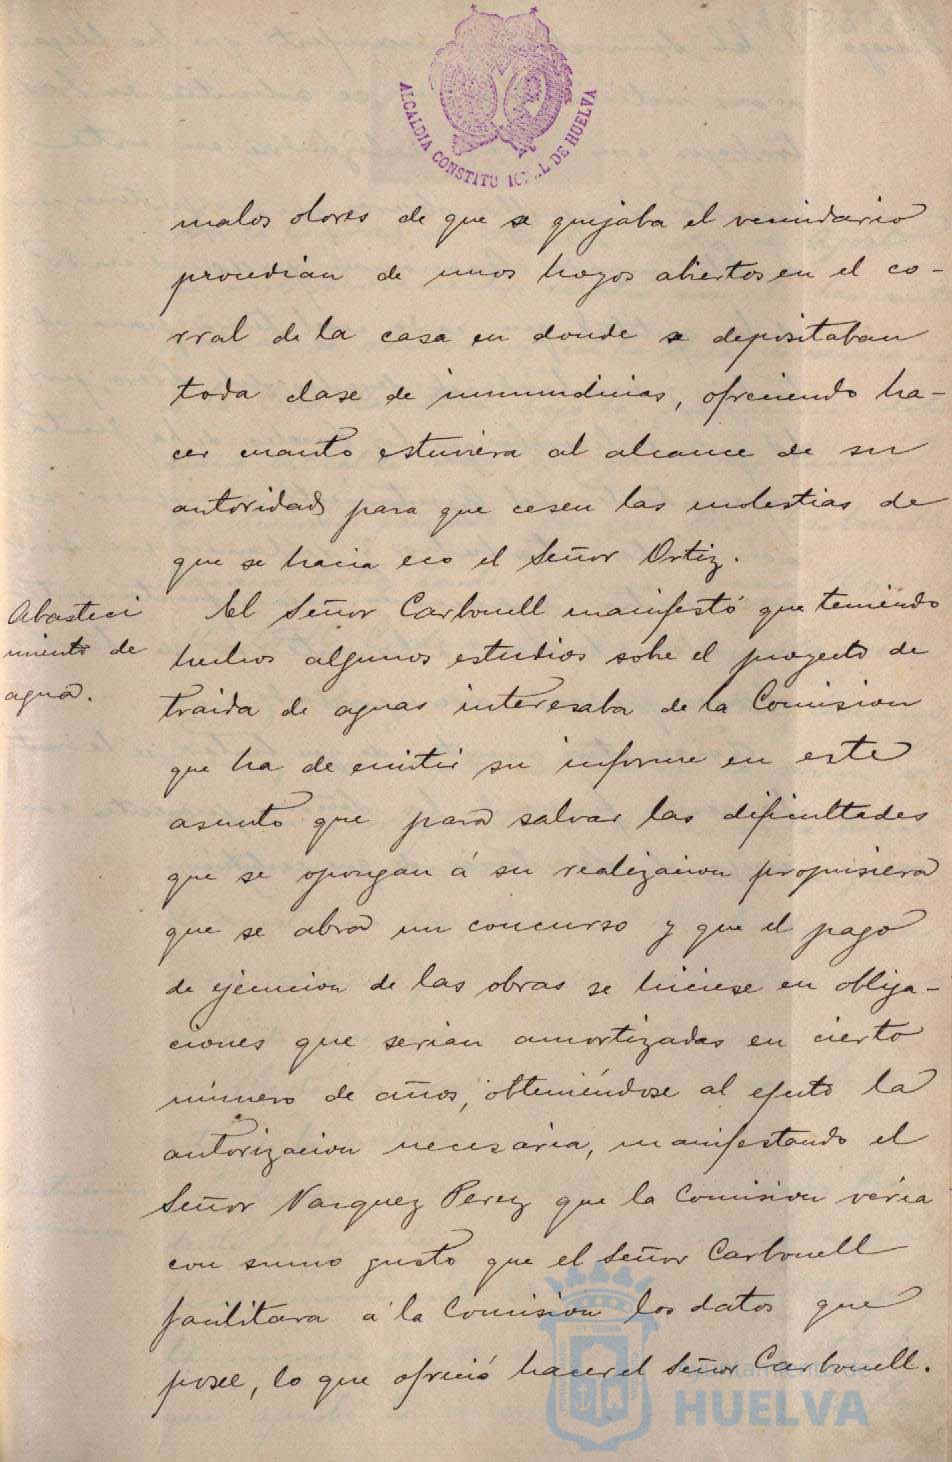 ALCALDIA CONSTITU
DE HUELVA
malos olores de que se quejaba el vecindario
procedian de unos hoyos abiertos en el co-
rral de la casa en donde se depositaban
toda clase de inmundicias, ofreciendo ha-
cer cuanto estuviera al alcance de su
autoridad para que cesen las molestias de
que se hacia eco el Señor Ortiz.
Abasteci
miento de
agua.
El Señor Carbonell manifestó que teniendo
hechos algunos estudios sobre el proyecto de
traida de aguas interesaba de la Comision
que ha de emitir su informe en este
asunto que para salvar las dificultades
que se opongan á su realizacion propusiera
que se abra un concurso y que el pago
de ejecucion de las obras se hiciese en obliga-
ciones que serian amortizadas en cierto
número de años, obteniéndose al efecto la
autorizacion necesaria, manifestando el
Señor Vazquez Perez que la Comision veria
con sumo gusto que el Señor Carbonell
facilitara á la Comision los datos que
posee, lo que ofreció hacer el Señor Carbonell.
Ayuntamiento de
HUELVA